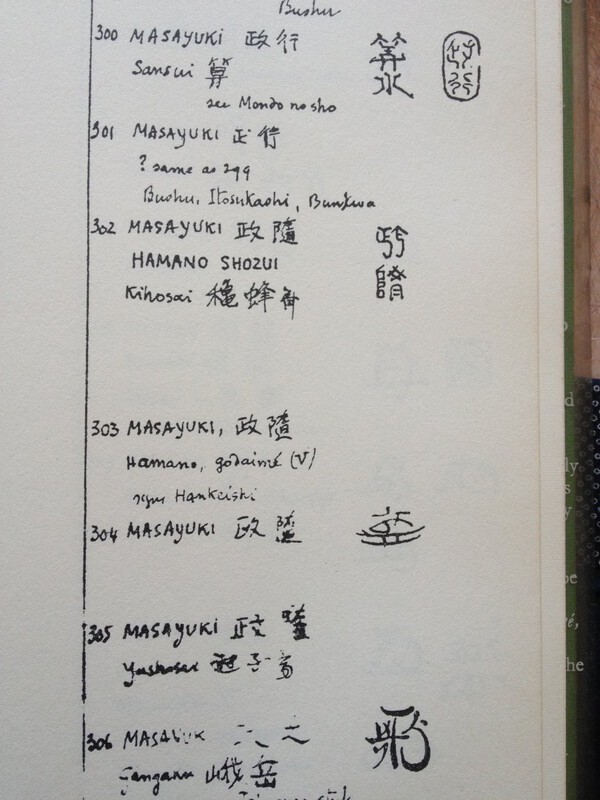 Bushu
300 MASAYUKI 政行
Sansui 算
see Mondo no sho
301 MASAYUKI 正行
? same as 299
Bushu, Itosukashi, Bunkwa
302 MASAYUKI 政隨
HAMANO SHOZUI
Kihosai 穐蜂斎
303 MASAYUKI, 政隨
Hamano, godaimé (V)
sign Hankeishi
304 MASAYUKI 政
305 MASAYUKI 政
子斎
306 MASAYUK 之
Gangaku 岳